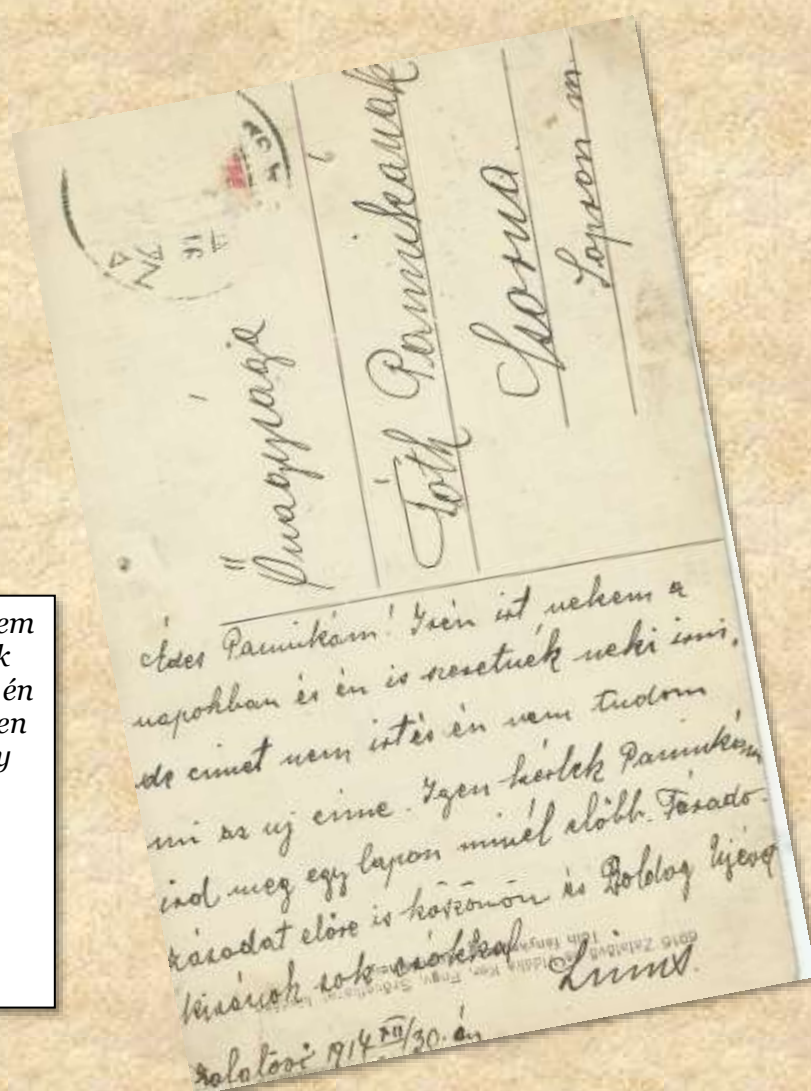 em
k
én
en
y
Őnagysága
Tóth Pannikának
Csorna.
Sopron m
Édes Pannikám! Irén irt nekem a
napokban és én is szeretnék neki irni,
de cimet nem irt és én nem tudom
mi az uj cime. Igen kérlek Pannikám
ird meg egy lapon minél előbb. Fárado-
zásodat előre is köszönöm és Boldog Ujévet
kivánok sok csókkal
Zalalövő 1914 XII/30.-án